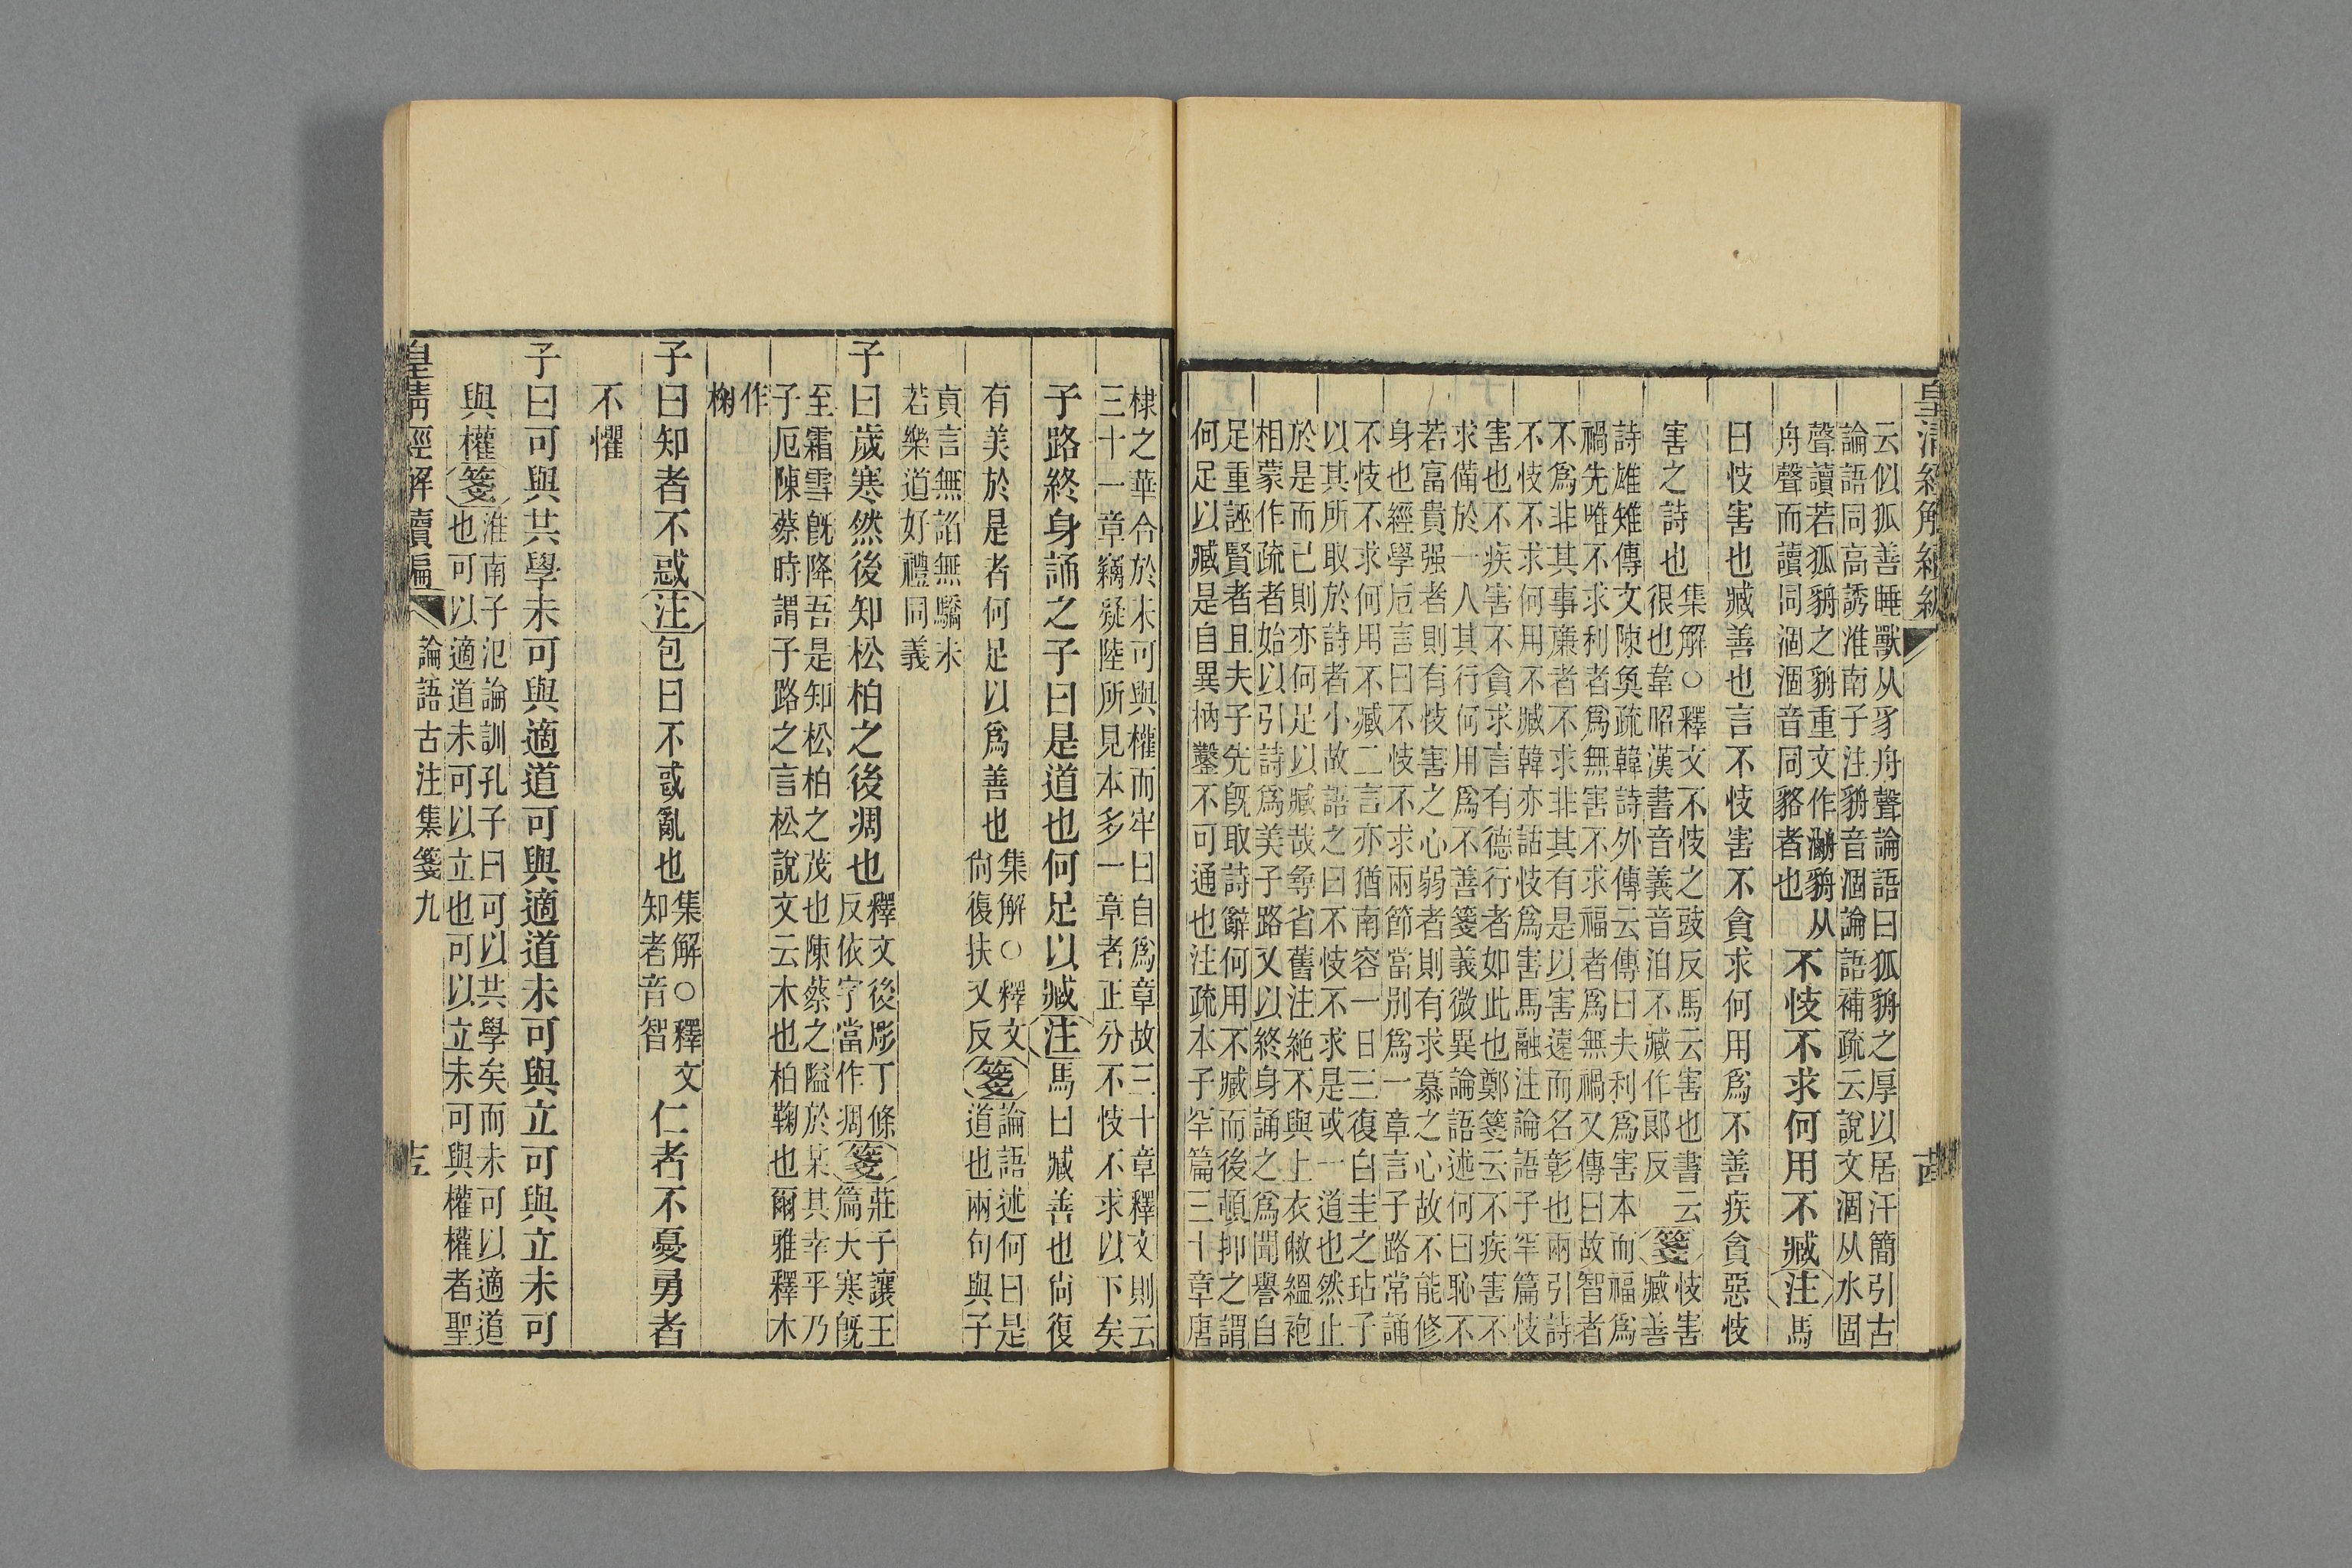 皇清經解續編
云似狐善睡獸从豸舟聲論語曰狐貈之厚以居汗簡引古
論語同高誘淮南子注貈音涸論語補疏云說文涸从水固
聲讀若狐貈之貈重文作貈从
舟聲而讀同涸涸音同貉者也
不忮不求何用不臧注馬
曰忮害也臧善也言不忮害不貪求何用爲不善疾貪惡忮
害之詩也
集解○釋文不忮之豉反馬云害也書云
很也韋昭漢書音義音洎不臧作郎反
箋
忮害
臧善
詩雄雉傳文陳奐疏韓詩外傳云傳曰夫利爲害本而福爲
禍先唯不求利者爲無害不求福者爲無禍又傳曰故智者
不爲非其事廉者不求非其有是以害遠而名彰也兩引詩
不忮不求何用不臧韓亦詁忮爲害馬融注論語子罕篇忮
害也不疾害不貪求言有德行者如此也鄭箋云不疾害不
求備於一人其行何用爲不善箋義微異論語述何曰恥不
若富貴强者則有忮害之心弱者則有求慕之心故不能修
身也經學卮言曰不忮不求兩節當別爲一章言子路常誦
不忮不求何用不臧二言亦猶南容一日三復白圭之玷子
以其所取於詩者小故詔之曰不忮不求是或一道也然止
於是而已則亦何足以臧哉尋省舊注絶不與上衣敝縕袍
相蒙作疏者始以引詩爲美子路又以終身誦之爲聞譽自
足重誣賢者且夫子先旣取詩辭何用不臧而後頓抑之謂
何足以臧是自異枘鑿不可通也注疏本子罕篇三十章唐
棣之華合於未可與權而牢曰自爲章故三十章釋文則云
三十一章竊疑陸所見本多一章者正分不忮不求以下矣
子路終身誦之子曰是道也何足以臧注馬曰臧善也尙復
有美於是者何足以爲善也
集解○釋文
尙復扶又反
箋
論語述何曰是
道也兩句與子
貢言無諂無驕未
若樂道好禮同義
子曰歲寒然後知松柏之後凋也
釋文後彫丁條
反依字當作凋
箋
莊子讓王
篇大寒旣
至霜雪旣降吾是知松柏之茂也陳蔡之隘於某其幸乎乃
子厄陳蔡時謂子路之言松說文云木也柏鞠也爾雅釋木
作
椈
子曰知者不惑注包曰不惑亂也
集解○釋文
知者音智
仁者不憂勇者
不懼
子曰可與共學未可與適道可與適道未可與立可與立未可
與權箋
淮南子氾論訓孔子曰可以共學矣而未可以適道
也可以適道未可以立也可以立未可與權權者聖
皇清經解續編
論語古注集箋九